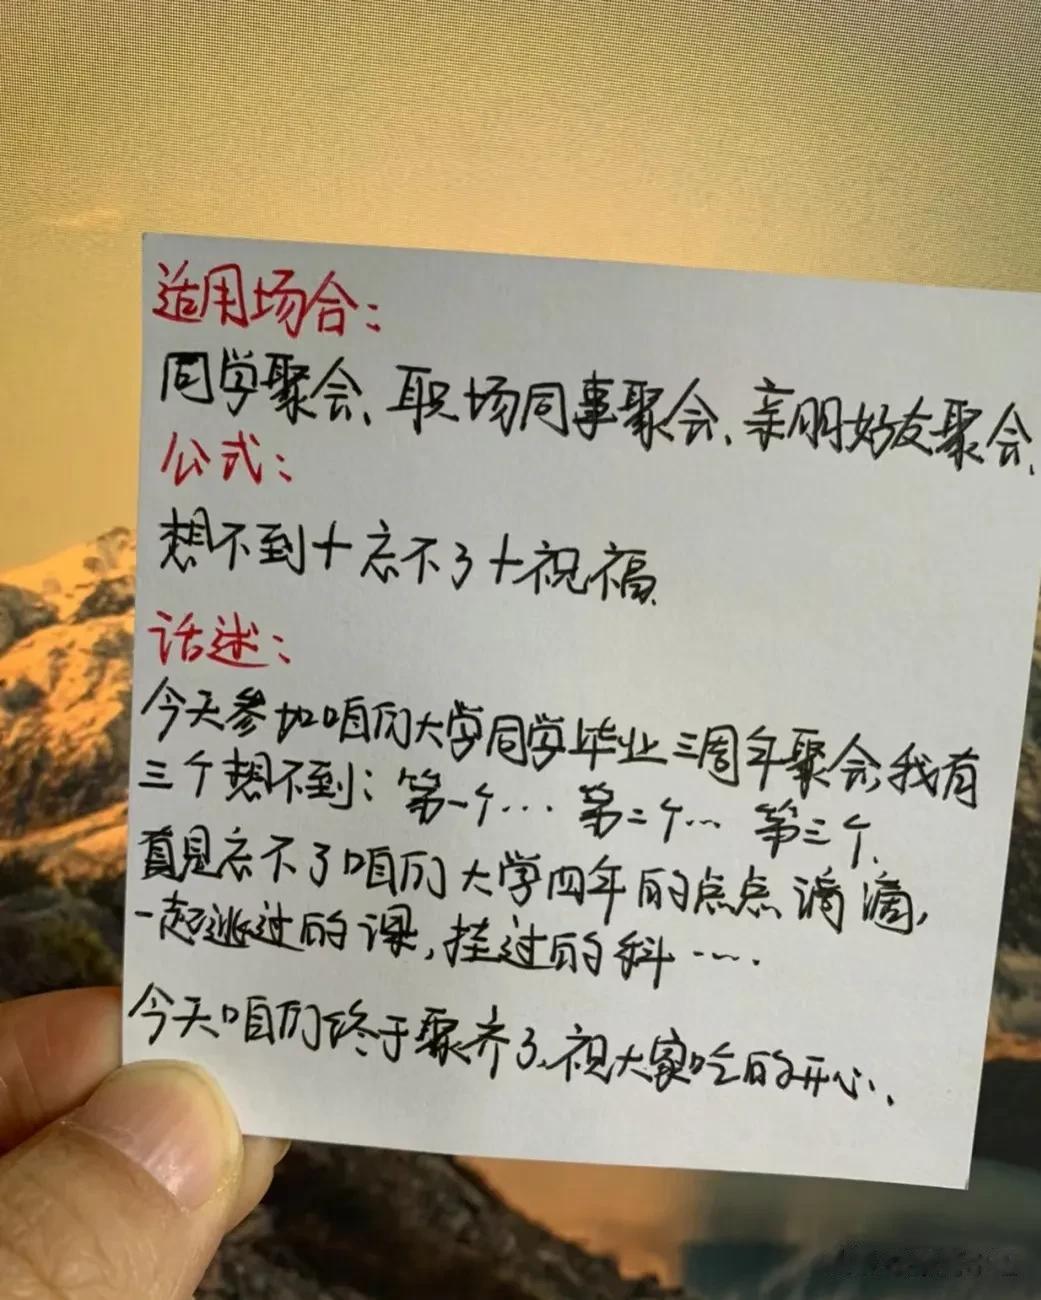 适用场合：
同学聚会、职场同事聚会、亲朋好友聚会、
公式：
想不到+忘不了+祝福、
话述：
今天参加咱们大学同学毕业三周年聚会,我有
三个想不到：第一个… 第二个… 第三个、
真是忘不了咱们大学四年的点点滴滴,
一起逃过的课,挂过的科….
今天咱们终于聚齐了、祝大家吃的开心、